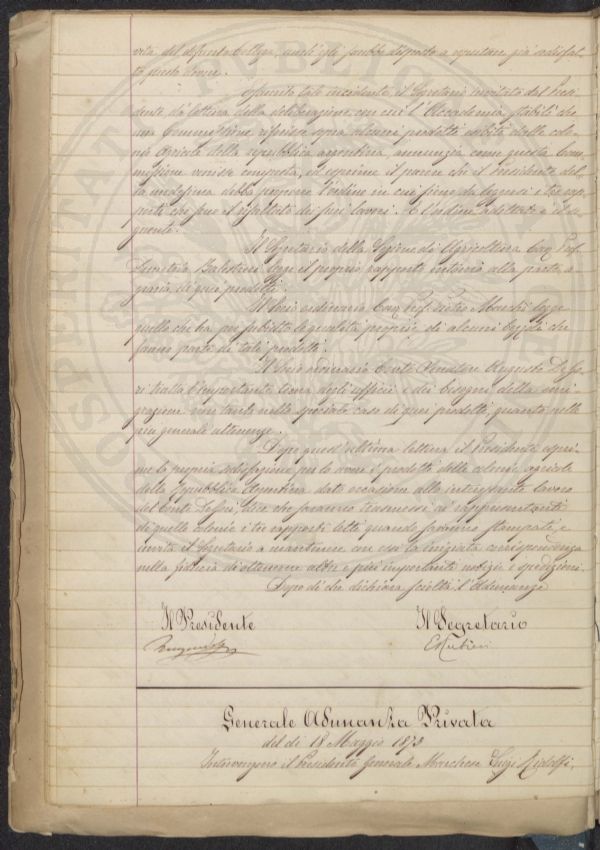 vita del defunto Collega, anch'egli sarebbe disposto a reputare già sodisfat-
to questo dovere.
Esaurito tale incidente il Segretario invitato dal Presi-
dente dà lettura della deliberazione con cui l'Accademia stabilì che
una Commissione riferisse sopra alcuni prodotti esibiti dalle colo-
nie agricole della repubblica argentina, annunzia come questa Com-
missione venisse composta, ed esprime il parere che il Presidente del-
la medesima debba proporre l'ordine in cui siano da leggersi i tre rap-
porti che sono il risultato dei suoi lavori. E l'ordine adottato è il se-
guente.
Il Segretario della Sezione di Agricoltura Cav. Prof.
legge il proprio rapporto intorno alla parte a-
graria di quei prodotti.
Il Socio ordinario Cav. Prof. Pietro Marchi legge
quello che ha per subietto le qualità proprie di alcuni oggetti che
fanno parte di tali prodotti.
Il Socio ordinario Conte Senatore Augusto De Go-
ri tratta l'importante tema degli uffici e dei bisogni della emi-
grazione non tanto nello speciale caso di quei prodotti quanto nelle
più generali attinenze.
Dopo quest'ultima lettura il Presidente espri-
me la propria sodisfazione per lo avere i prodotti delle colonie agricole
della Repubblica Argentina dato occasione allo interessante lavoro
del Conte De Gori, dice che saranno trasmessi ai rappresentanti
di quelle colonie i tre rapporti letti quando saranno stampati, e
invita il Segretario a mantenere con essi la iniziata corrispondenza
nella fiducia di ottenerne altre e più importanti notizie e spedizioni.
Dopo di che dichiara sciolta l'Adunanza
Il Presidente Il Segretario
Generale Adunanza Privata
del dì 18 Maggio 1873
Intervengono il Presidente Generale Marchese Luigi Ridolfi,